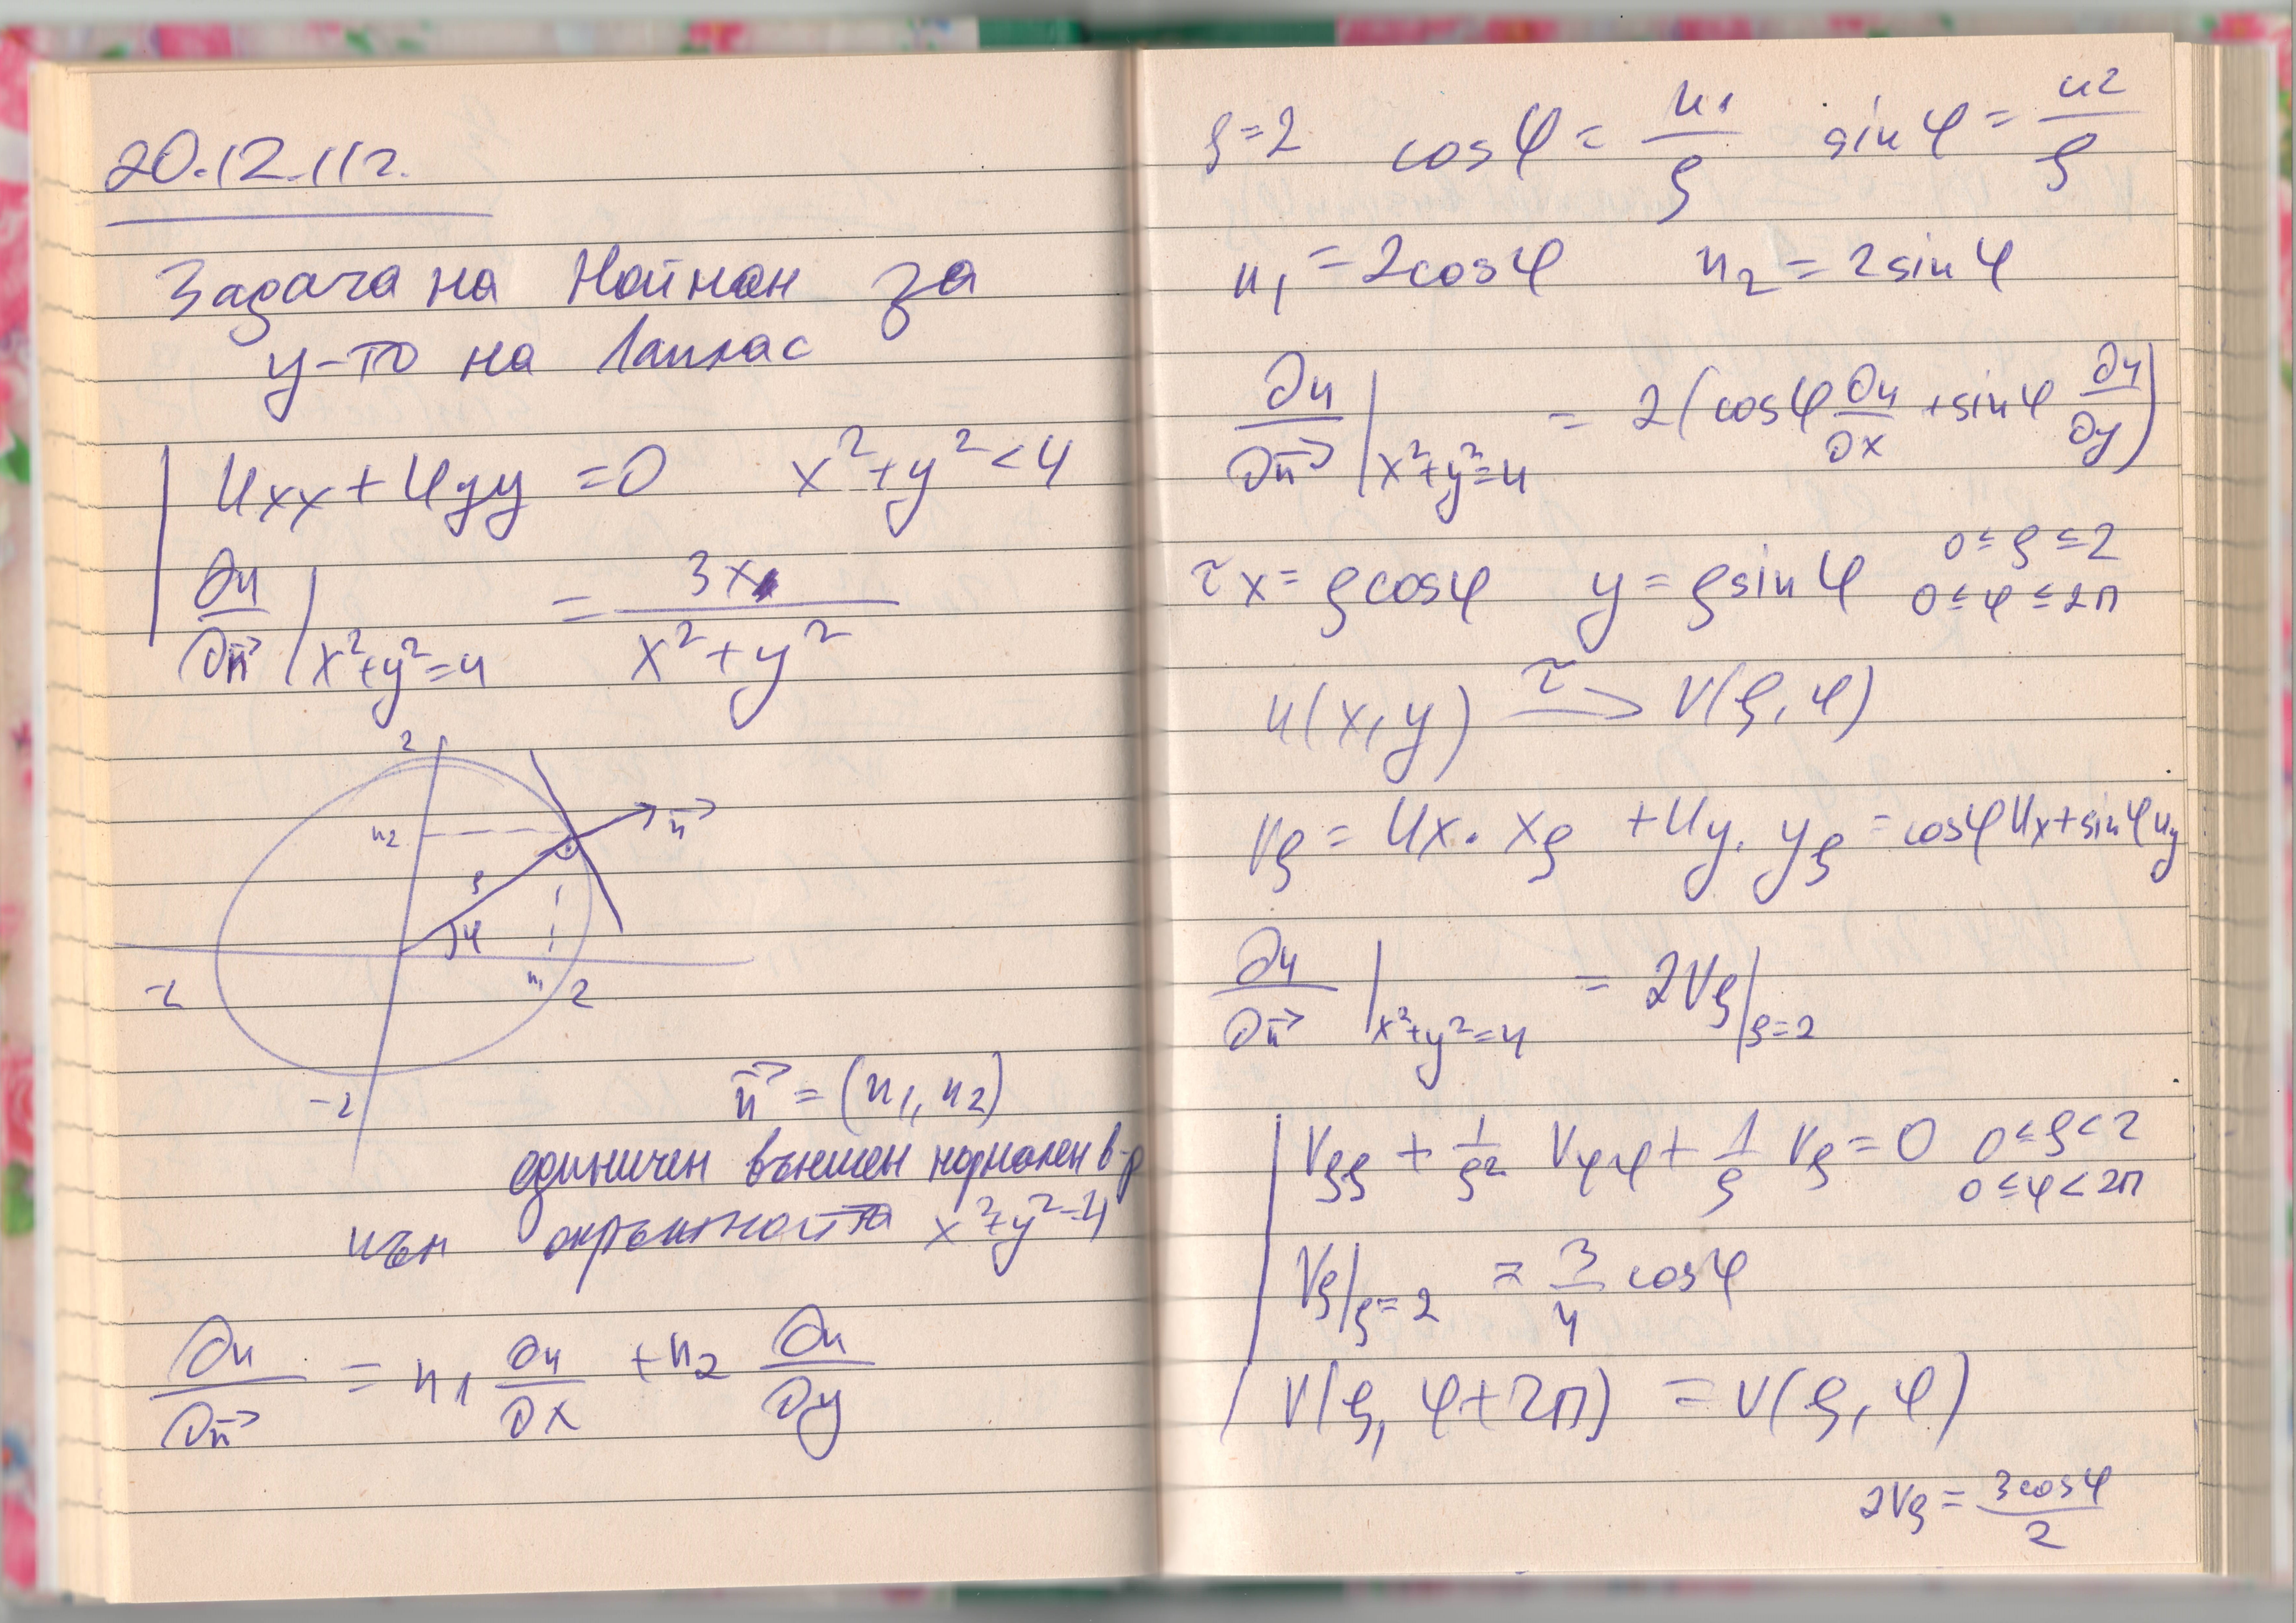 20.12.11г.
Задача на Нойман за
у-то на Лаплас
Uxx + Uyy = 0 x² + y² < 4
∂u/∂n⃗ |x²+y²=4 = 3x/(x² + y²)
2
n⃗
n2
ρ
φ
-2 n1 2
-2
n⃗ = (n1, n2)
единичен външен нормален в-р
към окръжността x²+y²=4
∂u/∂n⃗ = n1 ∂u/∂x + n2 ∂u/∂y
ρ=2 cosφ = n1/ρ sinφ = n2/ρ
n1 = 2cosφ n2 = 2sinφ
∂u/∂n⃗ |x²+y²=4 = 2(cosφ ∂u/∂x + sinφ ∂u/∂y)
τ x = ρcosφ y = ρsinφ 0 ≤ ρ ≤ 2
0 ≤ φ ≤ 2π
u(x,y) →τ V(ρ,φ)
Vρ = Ux. xρ + Uy. yρ = cosφUx + sinφUy
∂u/∂n⃗ |x²+y²=4 = 2Vρ|ρ=2
Vρρ + 1/ρ² Vφφ + 1/ρ Vρ = 0 0 ≤ ρ < 2
0 ≤ φ < 2π
Vρ|ρ=2 = 3/4 cosφ
V(ρ, φ+2π) = V(ρ, φ)
2Vρ = 3cosφ/2